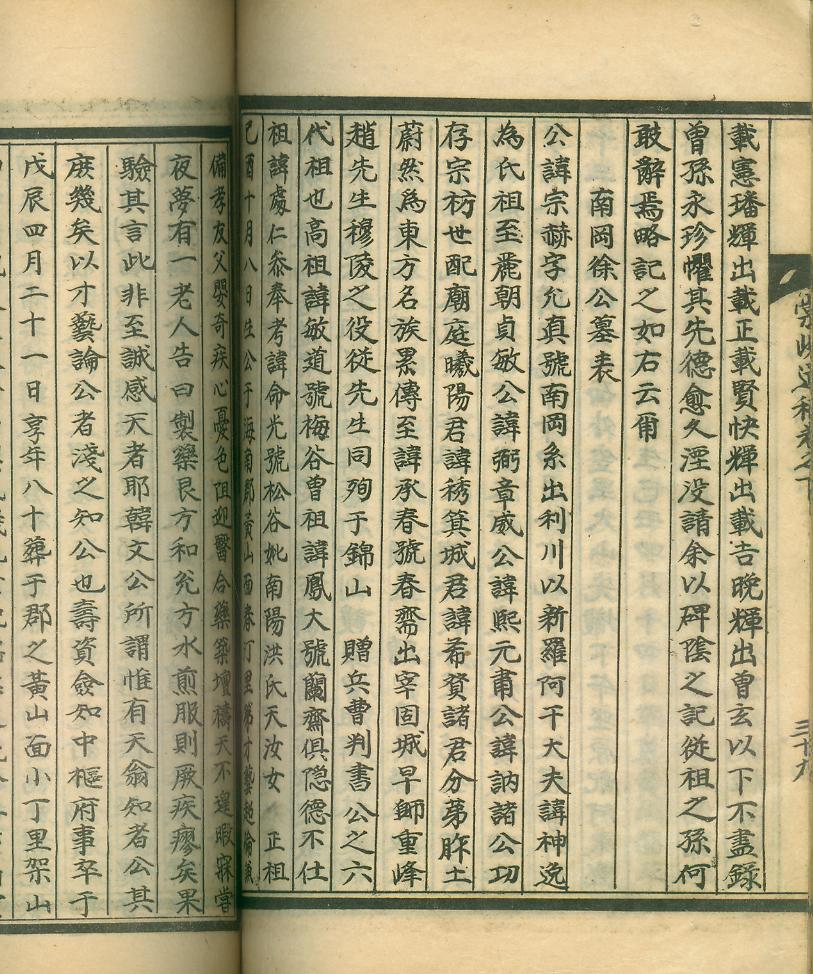 載憲璠輝出載正載賢快輝出載吉晩輝出曾玄以下不盡錄
曾孫永珍懼其先德愈久湮没請余以碑陰之記從祖之孫何
敢辭焉略記之如右云甭
南岡徐公墓表
公諱宗赫字允真號南岡系出利川以新羅阿干大夫諱神逸
為氏祖至麗朝貞敏公諱弼章威公諱熙元肅公諱訥諸公功
存宗祊世配廟庭曦陽君諱秀箕城君諱希贊諸君分苐胙土
蔚然為東方名族累傳至諱承春號春齋出宰固城早師重峰
趙先生穆陵之役從先生同殉于錦山 贈兵曹判書公之六
代祖也高祖諱敏道號梅谷曾祖諱鳳大號蘭齋俱隱德不仕
祖諱處仁叅奉考諱命光號松谷妣南陽洪氏天汝女 正祖
己酉十月八日生公于海南郡黃山面春汀里第才藝超倫
備孝友父嬰奇疾心憂色阻迎醫合藥築壇禱天不遑暇寐嘗
夜夢有一老人告曰製藥艮方和兊方水煎服則厥疾瘳矣果
驗其言此非至誠感天者耶韓文公所謂惟有天翁知者公其
庶幾矣以才藝論公者淺之知公也壽資僉知中樞府事卒于
戊辰四月二十一日享年八十葬于郡之黃山面小丁里架山
三十九